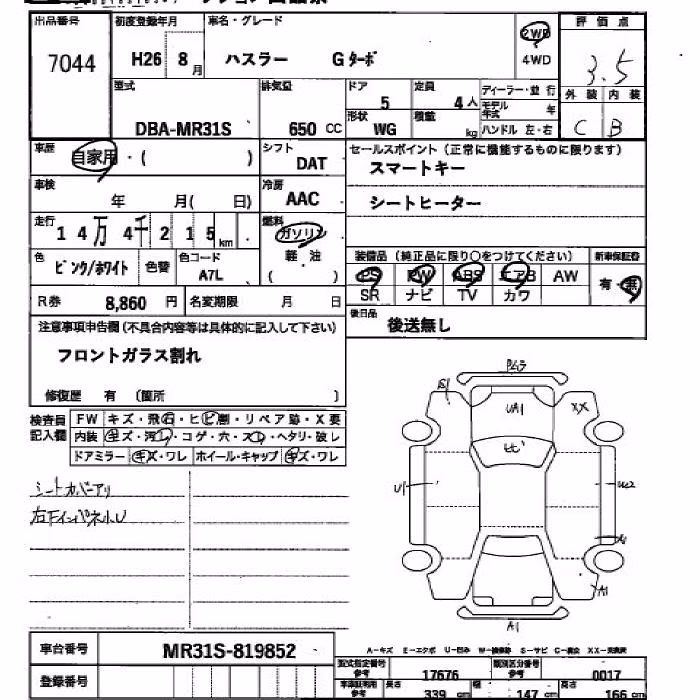 出品番号 初度登録年月 車名・グレード 2WD 評価点
7044 H26 8月 ハスラー Gターボ 4WD 3.5
型式 排気量 ドア 定員 ディーラー・並行 外装 内装
5 4人 モデル年式 年
DBA-MR31S 650 CC 形状 WG 積載 kg ハンドル 左・右 C B
車歴 自家用・( ) シフト DAT セールスポイント(正常に機能するものに限ります)
スマートキー
車検 年 月( 日) 冷房 AAC シートヒーター
走行 14万4千215km 燃料 ガソリン
軽油
色 ピンク/ホワイト 色替 色コード A7L ( ) 装備品(純正品に限り○をつけてください) 新車保証書
PS PW ABS エアB AW 有・無
R券 8,860 円 名変期限 月 日 SR ナビ TV カワ
注意事項申告欄(不具合内容等は具体的に記入して下さい) 後日品 後送無し
フロントガラス割れ
修復歴 有 (箇所 )
検査員記入欄 FW キズ・飛石・ヒビ割・リペア跡・X要
内装 キズ・汚レ・コゲ・穴・スレ・ヘタリ・破レ
ドアミラー キズ・ワレ ホイール・キャップ キズ・ワレ
シートカバーアリ
右Fインパネ小U
UA1
XX
U1
A1
A1
車台番号 MR31S-819852 A-キズ E-エクボ U-凹み W-補修跡 S-サビ C-腐食 XX-交換済
登録番号 型式指定番号 参考 17676 類別区分番号 参考 0017
長さ 339 cm 147 cm 高さ 166 cm